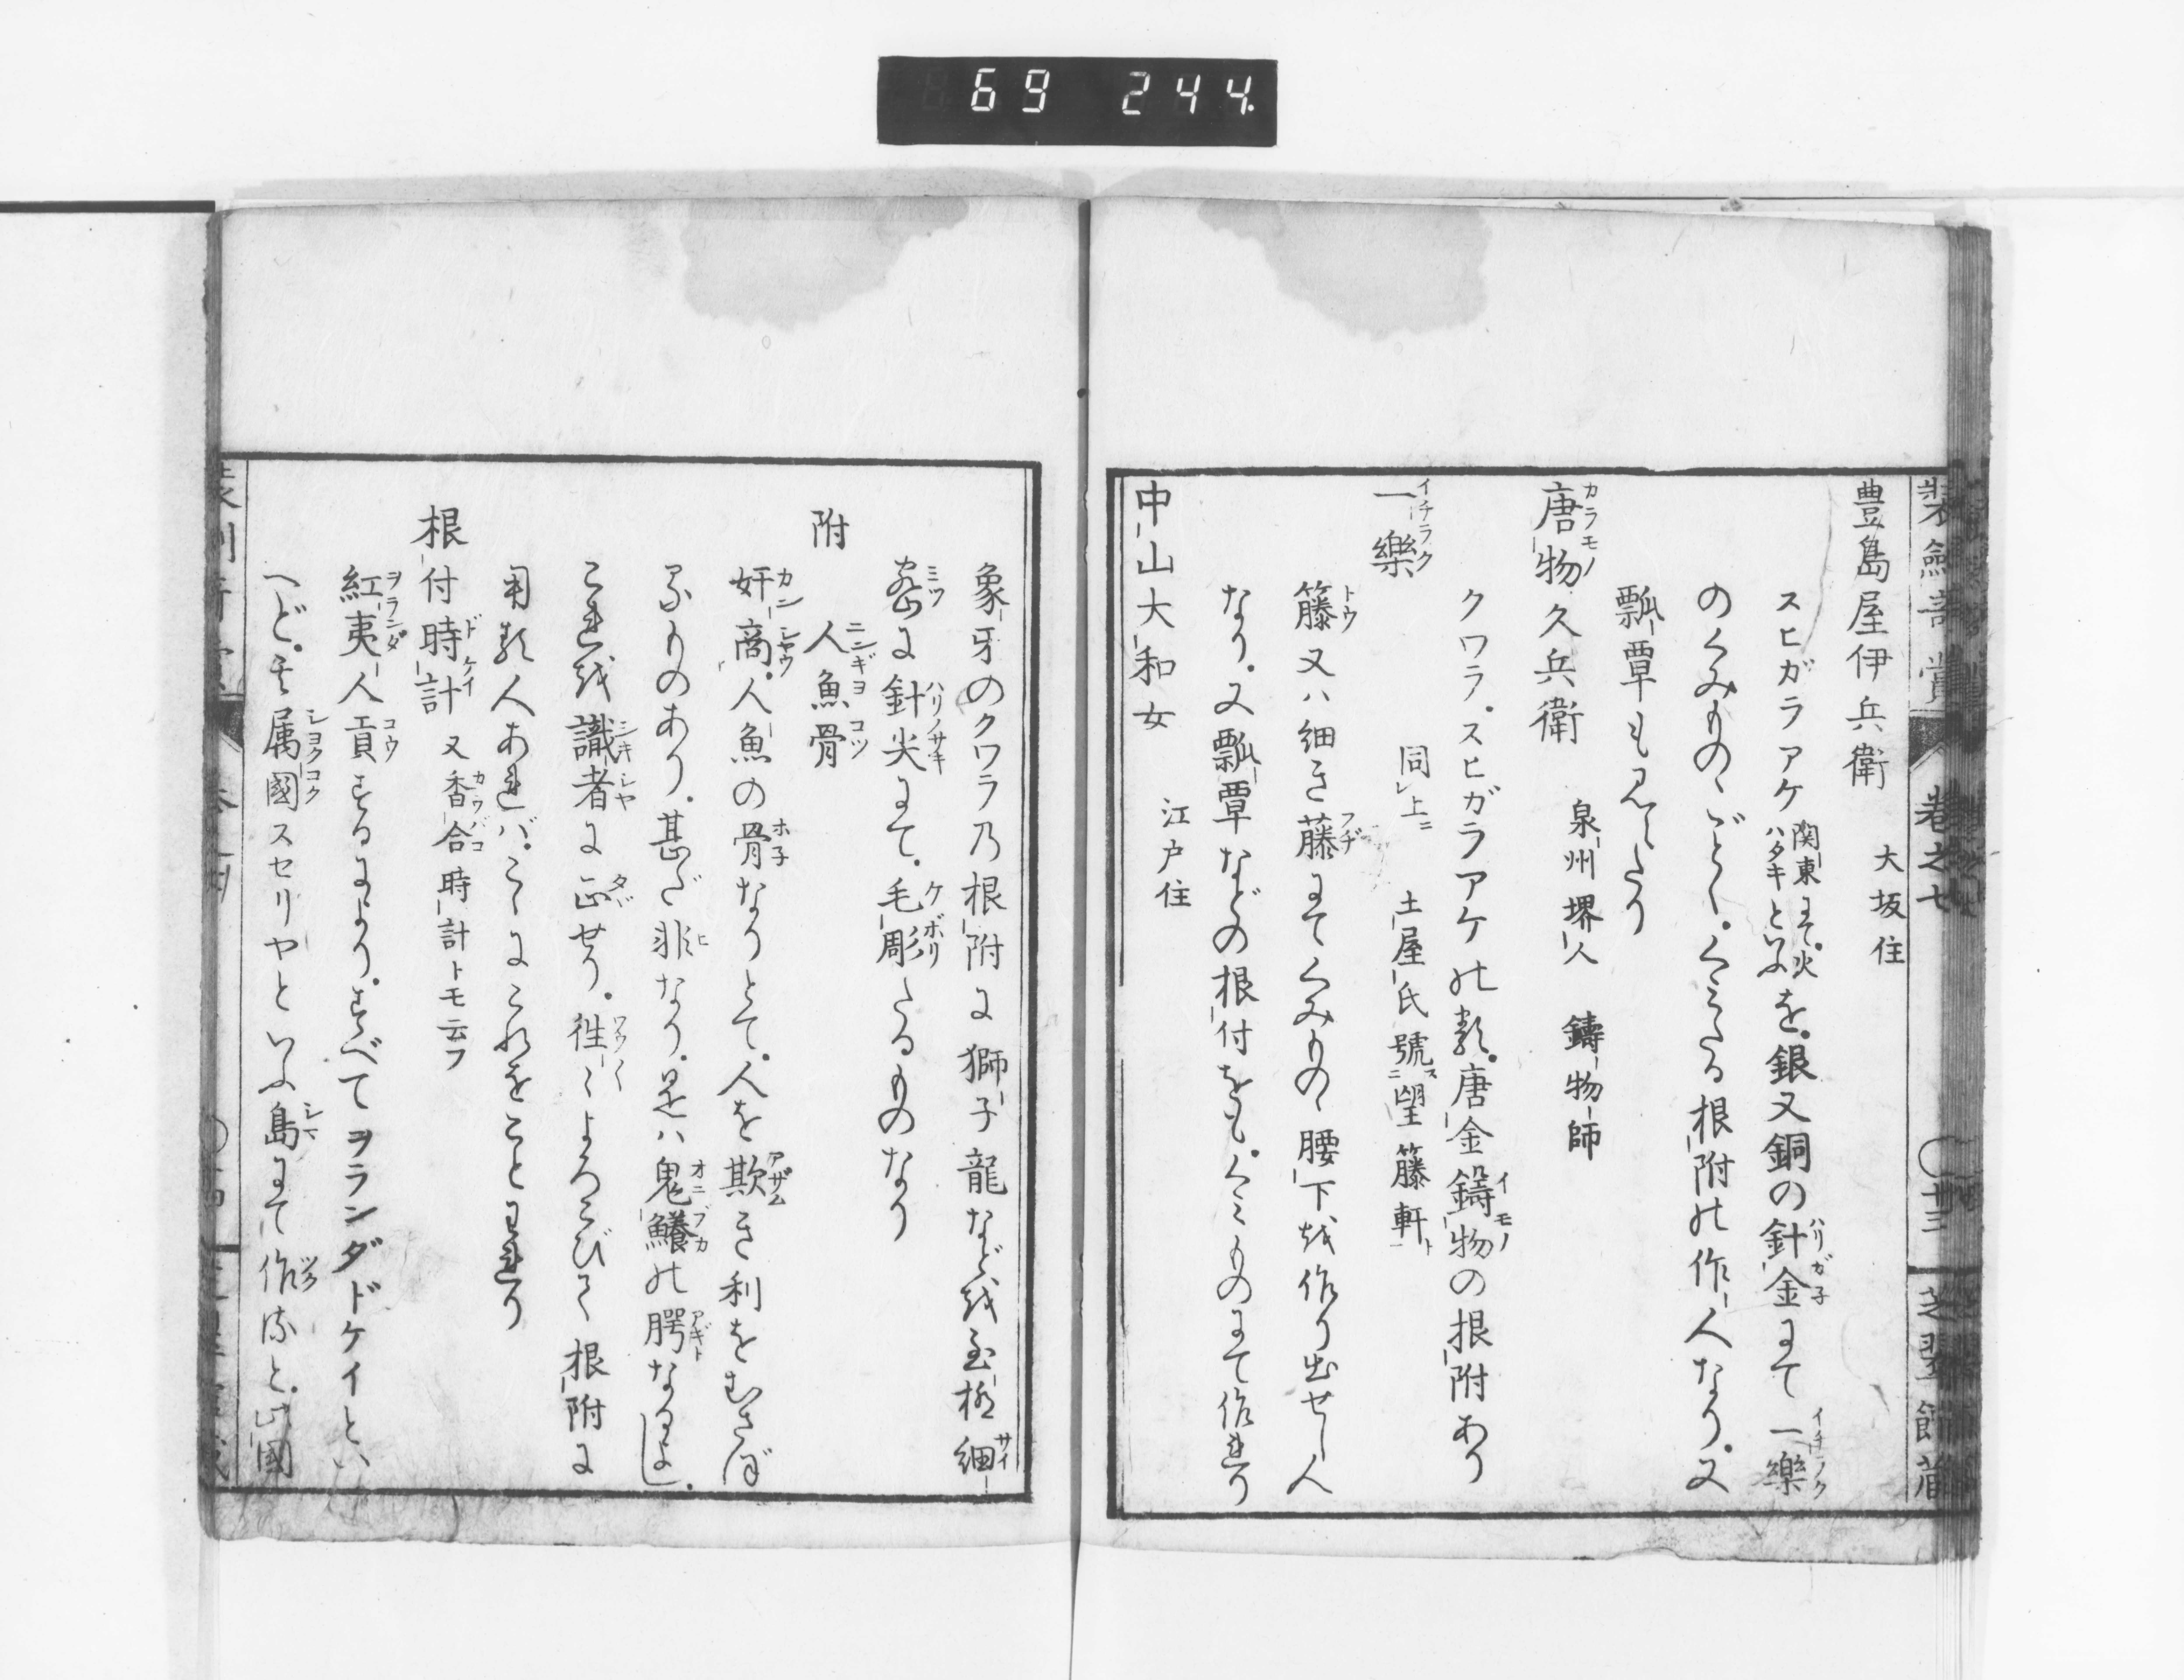 69 244
装劔奇賞 巻之七 廿三 芝翠館蔵
豊島屋伊兵衛 大坂住
スヒガラアケ関東にて火ハタキといふを。銀又銅の針金にて一樂
のくみものゝごとく。くみたる根附の作人なり。又
瓢覃も見へたり
唐物久兵衛 泉州堺人 鑄物師
クワラ。スヒガラアケの類。唐金鑄物の根附あり
一樂 同上ニ 土屋氏號ニス望籐軒ト
籐又ハ細き藤にてくみもの、腰下を作り出せし人
なり。又瓢覃などの根付をも。くみものにて作れり
中山大和女 江戸住
象牙のクワラ乃根附に獅子龍などを至極細
密に針尖にて。毛彫たるものなり
附 人魚骨
奸商。人魚の骨なりとて。人を欺き利をむさぼ
るものあり。甚だ非なり。是ハ鬼鱶の腭なるよし。
これを識者に正せり。徃〻よろこびて根附に
用る人あれバ。こゝにこれをことわれり
根付時計 又香合時計トモ云フ
紅夷人貢するによりすべてヲランダドケイとい
へど。其属國スセリヤといふ島にて作ると。此國